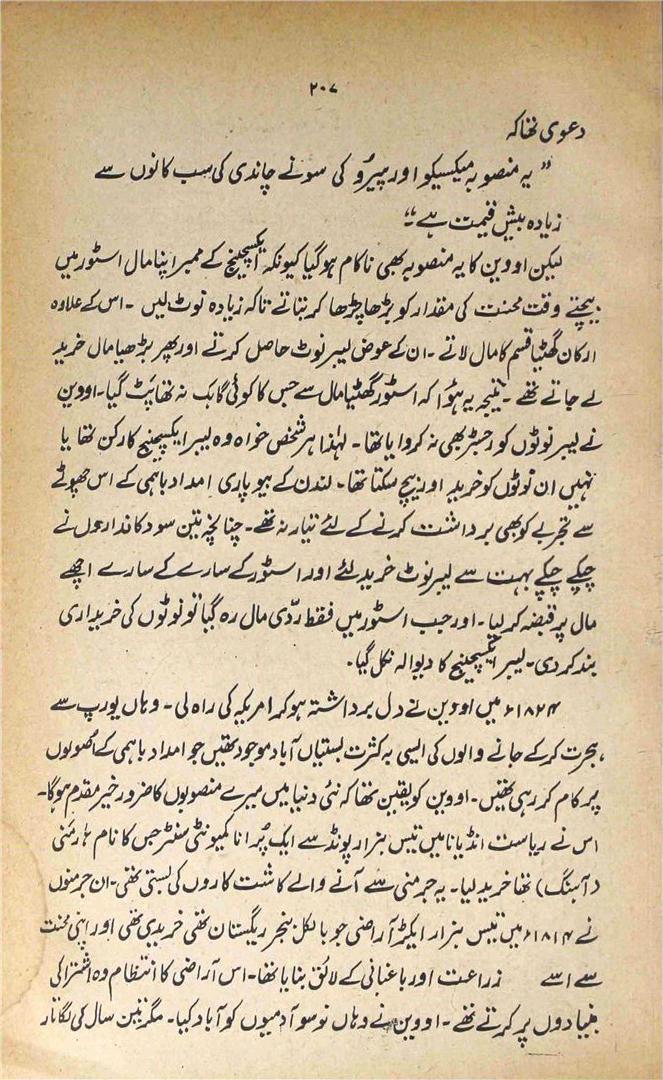 ۲۰۷
دعویٰ تھا کہ
” یہ منصوبہ میکسیکو اور پیرُو کی سونے چاندی کی سب کانوں سے
زیادہ بیش قیمت ہے “۔
لیکن اووین کا یہ منصوبہ بھی ناکام ہو گیا کیونکہ ایکسچینج کے ممبر اپنا مال اسٹور میں
بیچتے وقت محنت کی مقدار کو بڑھا چڑھا کر بتاتے تاکہ زیادہ نوٹ لیں ۔ اس کے علاوہ
ارکان گھٹیا قسم کا مال لاتے ۔ ان کے عوض لیبر نوٹ حاصل کرتے اور پھر بڑھیا مال خرید
لے جاتے تھے ۔ نتیجہ یہ ہُوا کہ اسٹور گھٹیا مال سے جس کا کوئی گاہک نہ تھا پَٹ گیا ۔ اووین
نے لیبر نوٹوں کو رجسٹر بھی نہ کروایا تھا ۔ لہٰذا ہر شخص خواہ وہ لیبر ایکسچینج کا رکن تھا یا
نہیں ان نوٹوں کو خرید اور بیچ سکتا تھا ۔ لندن کے بیوپاری امداد باہمی کے اس چھوٹے
سے تجربے کو بھی برداشت کرنے کے لئے تیار نہ تھے ۔ چنانچہ تین سو دکانداروں نے
چپکے چپکے بہت سے لیبر نوٹ خرید لئے اور اسٹور کے سارے کے سارے اچھے
مال پر قبضہ کر لیا ۔ اور جب اسٹور میں فقط ردّی مال رہ گیا تو نوٹوں کی خریداری
بند کر دی ۔ لیبر ایکسچینج کا دیوالہ نکل گیا ۔
۱۸۲۴ء میں اووین نے دل برداشتہ ہو کر امریکہ کی راہ لی ۔ وہاں یورپ سے
ہجرت کر کے جانے والوں کی ایسی بہ کثرت بستیاں آباد موجود تھیں جو امداد باہمی کے اُصولوں
پر کام کر رہی تھیں ۔ اووین کو یقین تھا کہ نئی دنیا میں میرے منصوبوں کا ضرور خیر مقدم ہوگا ۔
اس نے ریاست انڈیانا میں تیس ہزار پونڈ سے ایک پُرانا کمیونٹی سنٹر جس کا نام ہارمنی
(آہنگ) تھا خرید لیا ۔ یہ جرمنی سے آنے والے کاشت کاروں کی بستی تھی ۔ ان جرمنوں
نے ۱۸۱۴ء میں تیس ہزار ایکڑ آراضی جو بالکل بنجر ریگستان تھی خریدی تھی اور اپنی محنت
سے اسے زراعت اور باغبانی کے لائق بنایا تھا ۔ اس آراضی کا انتظام وہ اشتراکی
بنیادوں پر کرتے تھے ۔ اووین نے وہاں نو سو آدمیوں کو آباد کیا ۔ مگر تین سال کی لگاتار